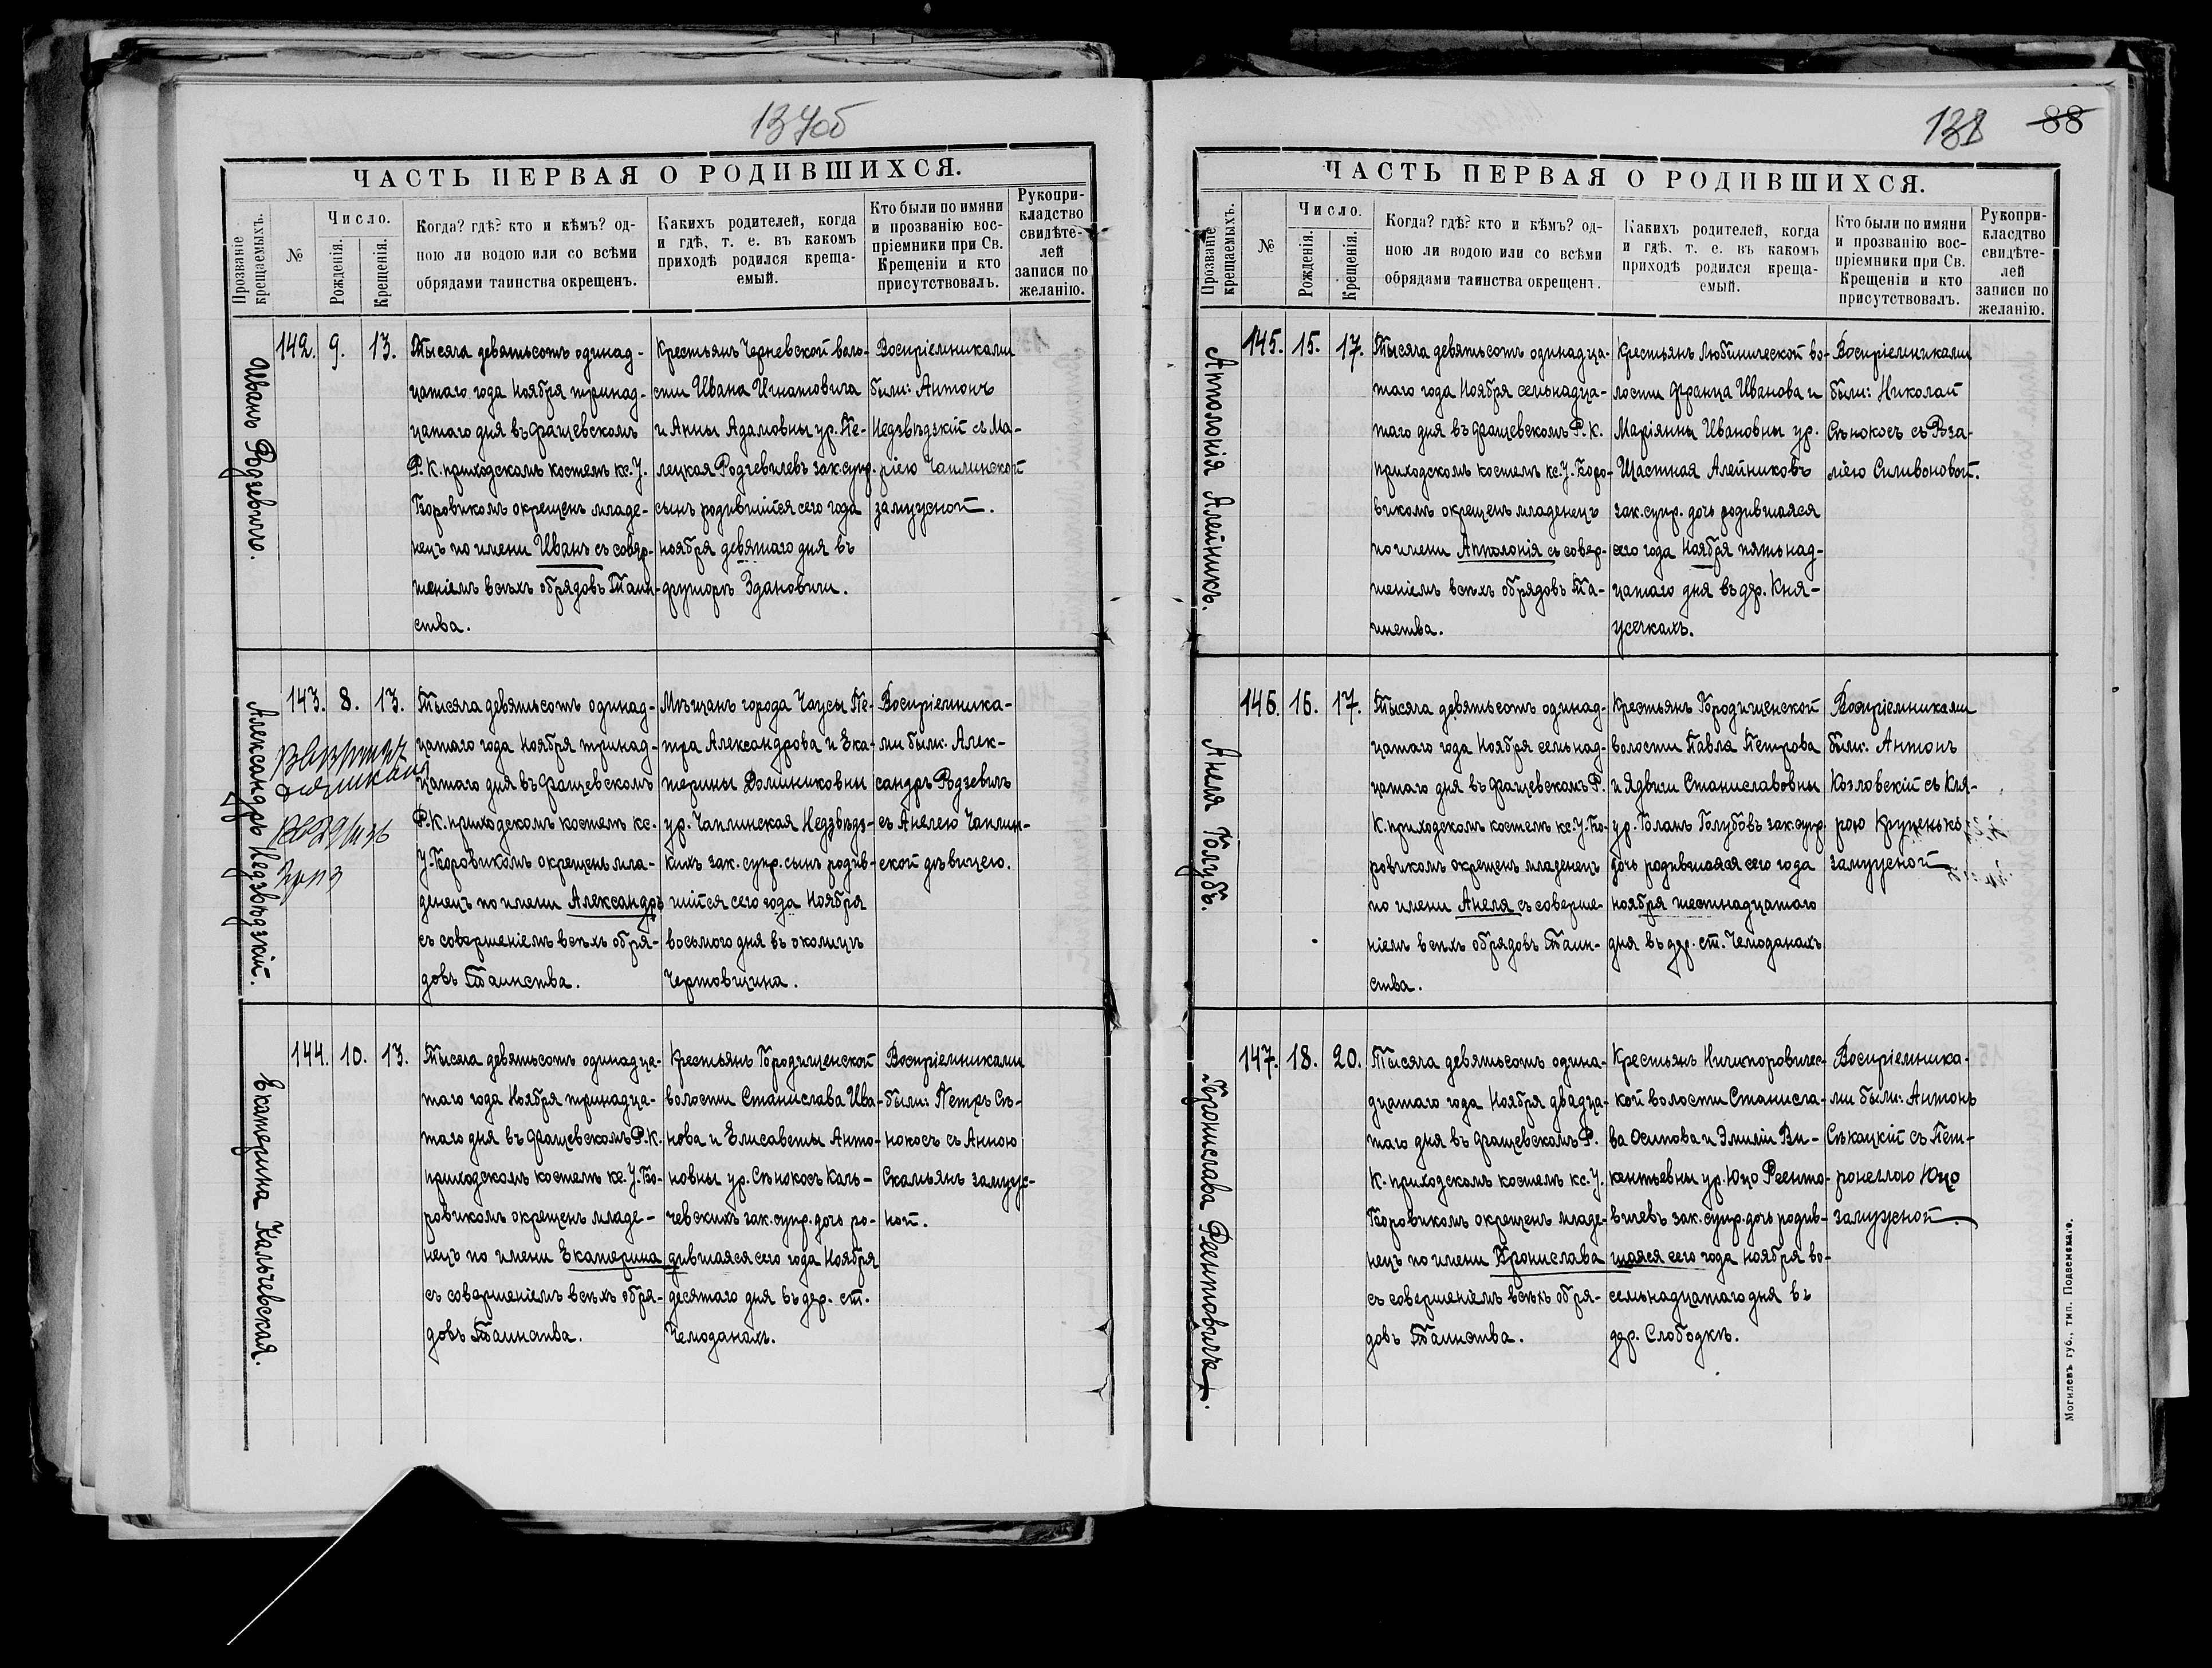 137об
ЧАСТЬ ПЕРВАЯ О РОДИВШИХСЯ.
Прозваніе крещаемыхъ.
№
Число.
Рожденія.
Крещенія.
Когда? гдѣ? кто и кѣмъ? од-
ною ли водою или со всѣми
обрядами таинства окрещенъ.
Какихъ родителей, когда
и гдѣ, т. е. въ какомъ
приходѣ родился креща-
емый.
Кто были по имяни
и прозванію вос-
пріемники при Св.
Крещеніи и кто
присутствовалъ.
Рукопри-
кладство
свидѣте-
лей
записи по
желанію.
Иванъ Родзевичъ.
142. 9. 13.
Тысяча девятьсотъ одинад-
цатаго года Ноября тринад-
цатаго дня въ Фащевскомъ
Р. К. приходскомъ костелѣ кс. У.
Боровикомъ окрещенъ младе-
нецъ по имени Иванъ съ совер-
шеніемъ всѣхъ обрядовъ Таин-
ства.
Крестьянъ Черневской воло-
сти Ивана Игнатовича
и Анны Адамовны ур. Пе-
лецкая Родзевилевъ зак. супр.
сынъ родившійся сего года
ноября девятаго дня въ
футорѣ Здановичи.
Воспріемниками
были: Антонъ
Недзвѣдзкій съ Ма-
ріею Чаплинской
замужной.
Александръ Недзвѣдзкій.
143. 8. 13.
Тысяча девятьсотъ одинад-
цатаго года Ноября тринад-
цатаго дня въ Фащевскомъ
Р. К. приходскомъ костелѣ кс.
У. Боровикомъ окрещенъ мла-
денецъ по имени Александръ
съ совершеніемъ всѣхъ обря-
довъ Таинства.
Мѣщанъ города Чаусы Пе-
тра Александрова и Ека-
терины Доминиковны
ур. Чаплинская Недзвѣдз-
кихъ зак. супр. сынъ родив-
шійся сего года Ноября
восьмого дня въ околицѣ
Чертовщина.
Воспріемника-
ми были: Алек-
сандръ Родзевилъ
съ Анелею Чаплин-
ской дѣвицею.
Екатерина Кальчевская.
144. 10. 13.
Тысяча девятьсотъ одинадца-
таго года Ноября тринадца-
таго дня въ Фащевскомъ Р. К.
приходскомъ костелѣ кс. У. Бо-
ровикомъ окрещенъ младе-
нецъ по имени Екатерина
съ совершеніемъ всѣхъ обря-
довъ Таинства.
Крестьянъ Городищенской
волости Станислава Ива-
нова и Елисаветы Анто-
новны ур. Сѣнокосъ Каль-
чевскихъ зак. супр. дочь ро-
дившаяся сего года Ноября
десятаго дня въ дер. ст.
Чемоданахъ.
Воспріемниками
были: Петръ Сѣ-
нокосъ съ Анною
Скамьянъ замуж-
ной.
138 88
ЧАСТЬ ПЕРВАЯ О РОДИВШИХСЯ.
Прозваніе крещаемыхъ.
№
Число.
Рожденія.
Крещенія.
Когда? гдѣ? кто и кѣмъ? од-
ною ли водою или со всѣми
обрядами таинства окрещенъ.
Какихъ родителей, когда
и гдѣ, т. е. въ какомъ
приходѣ родился креща-
емый.
Кто были по имяни
и прозванію вос-
пріемники при Св.
Крещеніи и кто
присутствовалъ.
Рукопри-
класдтво
свидѣте-
лей
записи по
желанію.
Апполонія Алейникъ.
145. 15. 17.
Тысяча девятьсотъ одинадца-
таго года Ноября семьнадца-
таго дня въ Фащевскомъ Р. К.
приходскомъ костелѣ кс. У. Боро-
викомъ окрещенъ младенецъ
по имени Апполонія съ совер-
шеніемъ всѣхъ обрядовъ Та-
инства.
Крестьянъ Любинической во-
лости Франца Иванова и
Маріянны Ивановны ур.
Щастная Алейниковъ
зак. супр. дочь родившаяся
сего года Ноября пятьнад-
цатаго дня въ дер. Кня-
усечкахъ.
Воспріемниками
были: Николай
Сѣнокосъ съ Роза-
ліею Силивоновой.
Анеля Голубъ.
146. 16. 17.
Тысяча девятьсотъ одинад-
цатаго года Ноября семьнад-
цатаго дня въ Фащевскомъ Р.
К. приходскомъ костелѣ кс. У. Бо-
ровикомъ окрещенъ младенецъ
по имени Анеля съ соверше-
ніемъ всѣхъ обрядовъ Таин-
ства.
Крестьянъ Городищенской
волости Павла Петрова
и Ядвиги Станиславовны
ур. Голанъ Голубовъ зак. супр.
дочь родившаяся сего года
ноября шестнадцатаго
дня въ дер. ст. Чемоданахъ
Воспріемниками
были: Антонъ
Козловскій съ Кля-
рою Крупенько
замужной
Бронислава Реентовичъ.
147. 18. 20.
Тысяча девятьсотъ одина-
дцатаго года Ноября двадца-
таго дня въ Фащевскомъ Р.
К. приходскомъ костелѣ кс. У.
Боровикомъ окрещенъ младе-
нецъ по имени Бронислава
съ совершеніемъ всѣхъ обря-
довъ Таинства.
Крестьянъ Ничипоровичес-
кой волости Станисла-
ва Осипова и Эмиліи Ви-
кентьевны ур. Юцо Реенто-
вичевъ зак. супр. дочь родив-
шаяся сего года ноября во-
семьнадцатаго дня въ
дер. Слободкѣ.
Воспріемника-
ми были: Антонъ
Сѣкацкій съ Пет-
ронеллою Юцо
замужной.
Могилевъ губ., тип. Подземскаго.